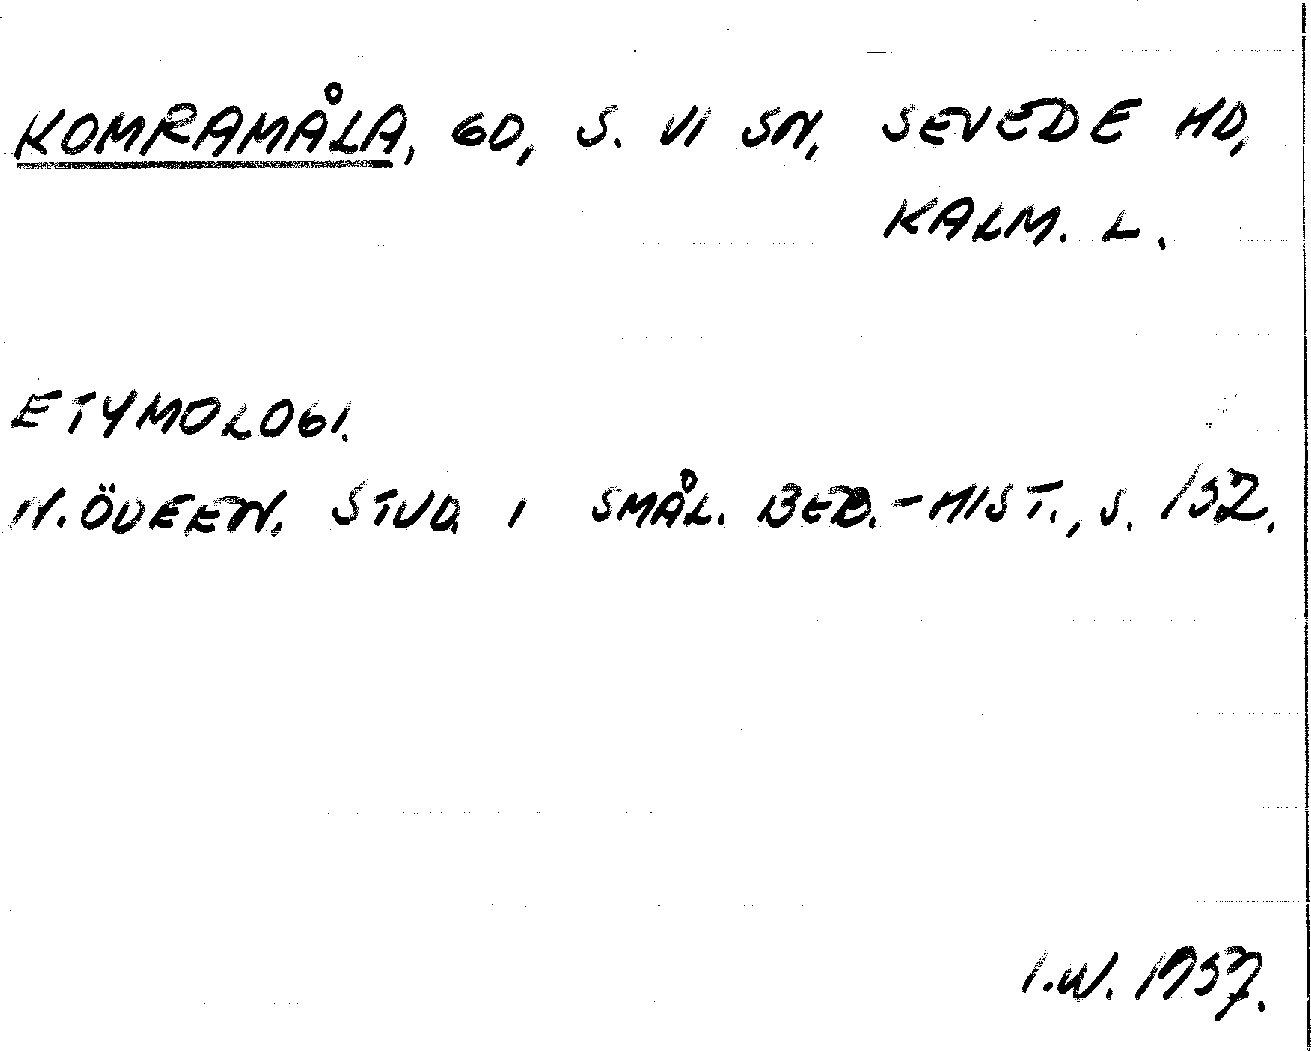 KOMRAMÅLA, GD, S. VI SN, SEVEDE HD,
KALM. L.
ETYMOLOGI.
N. ÖDEEN. STUD. I SMÅL. BEB.-HIST., S. 152.
I.W. 1957.